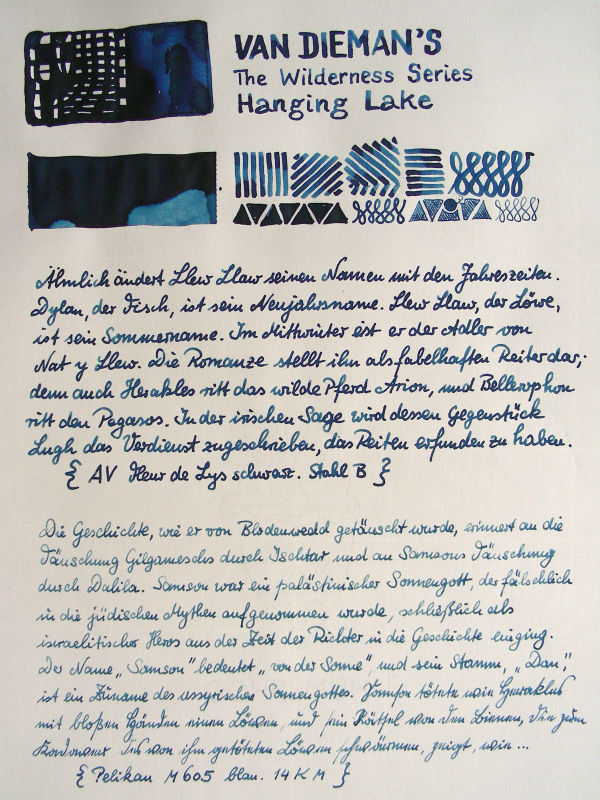 VAN DIEMAN'S
The Wilderness Series
Hanging Lake
Ähnlich ändert Llew Llaw seinen Namen mit den Jahreszeiten.
Dylan, der Fisch, ist sein Neujahrsname. Llew Llaw, der Löwe,
ist sein Sommername. Im Mittwinter ist er der Adler von
Nat y Llew. Die Romanze stellt ihn als fabelhaften Reiter dar;
denn auch Herakles ritt das wilde Pferd Arion, und Bellerophon
ritt den Pegasos. In der irischen Sage wird dessen Gegenstück
Lugh das Verdienst zugeschrieben, das Reiten erfunden zu haben.
{ AV Fleur de Lys schwarz. Stahl B }
Die Geschichte, wie er von Blodeuwedd getäuscht wurde, erinnert an die
Täuschung Gilgameschs durch Ischtar und an Samsons Täuschung
durch Dalila. Samson war ein palästinischer Sonnengott, der fälschlich
in die jüdischen Mythen aufgenommen wurde, schließlich als
israelitischer Heros aus der Zeit der Richter in die Geschichte einging.
Der Name „Samson" bedeutet „von der Sonne" und sein Stamm, „Dan",
ist ein Zuname des assyrischen Sonnengottes. Samson tötete wie Herakles
mit bloßen Händen einen Löwen, und sein Rätsel von den Bienen, die zum
Kadaver des von ihm getöteten Löwen schwärmen, zeigt, wie ...
{ Pelikan M 605 blau. 14 K M }